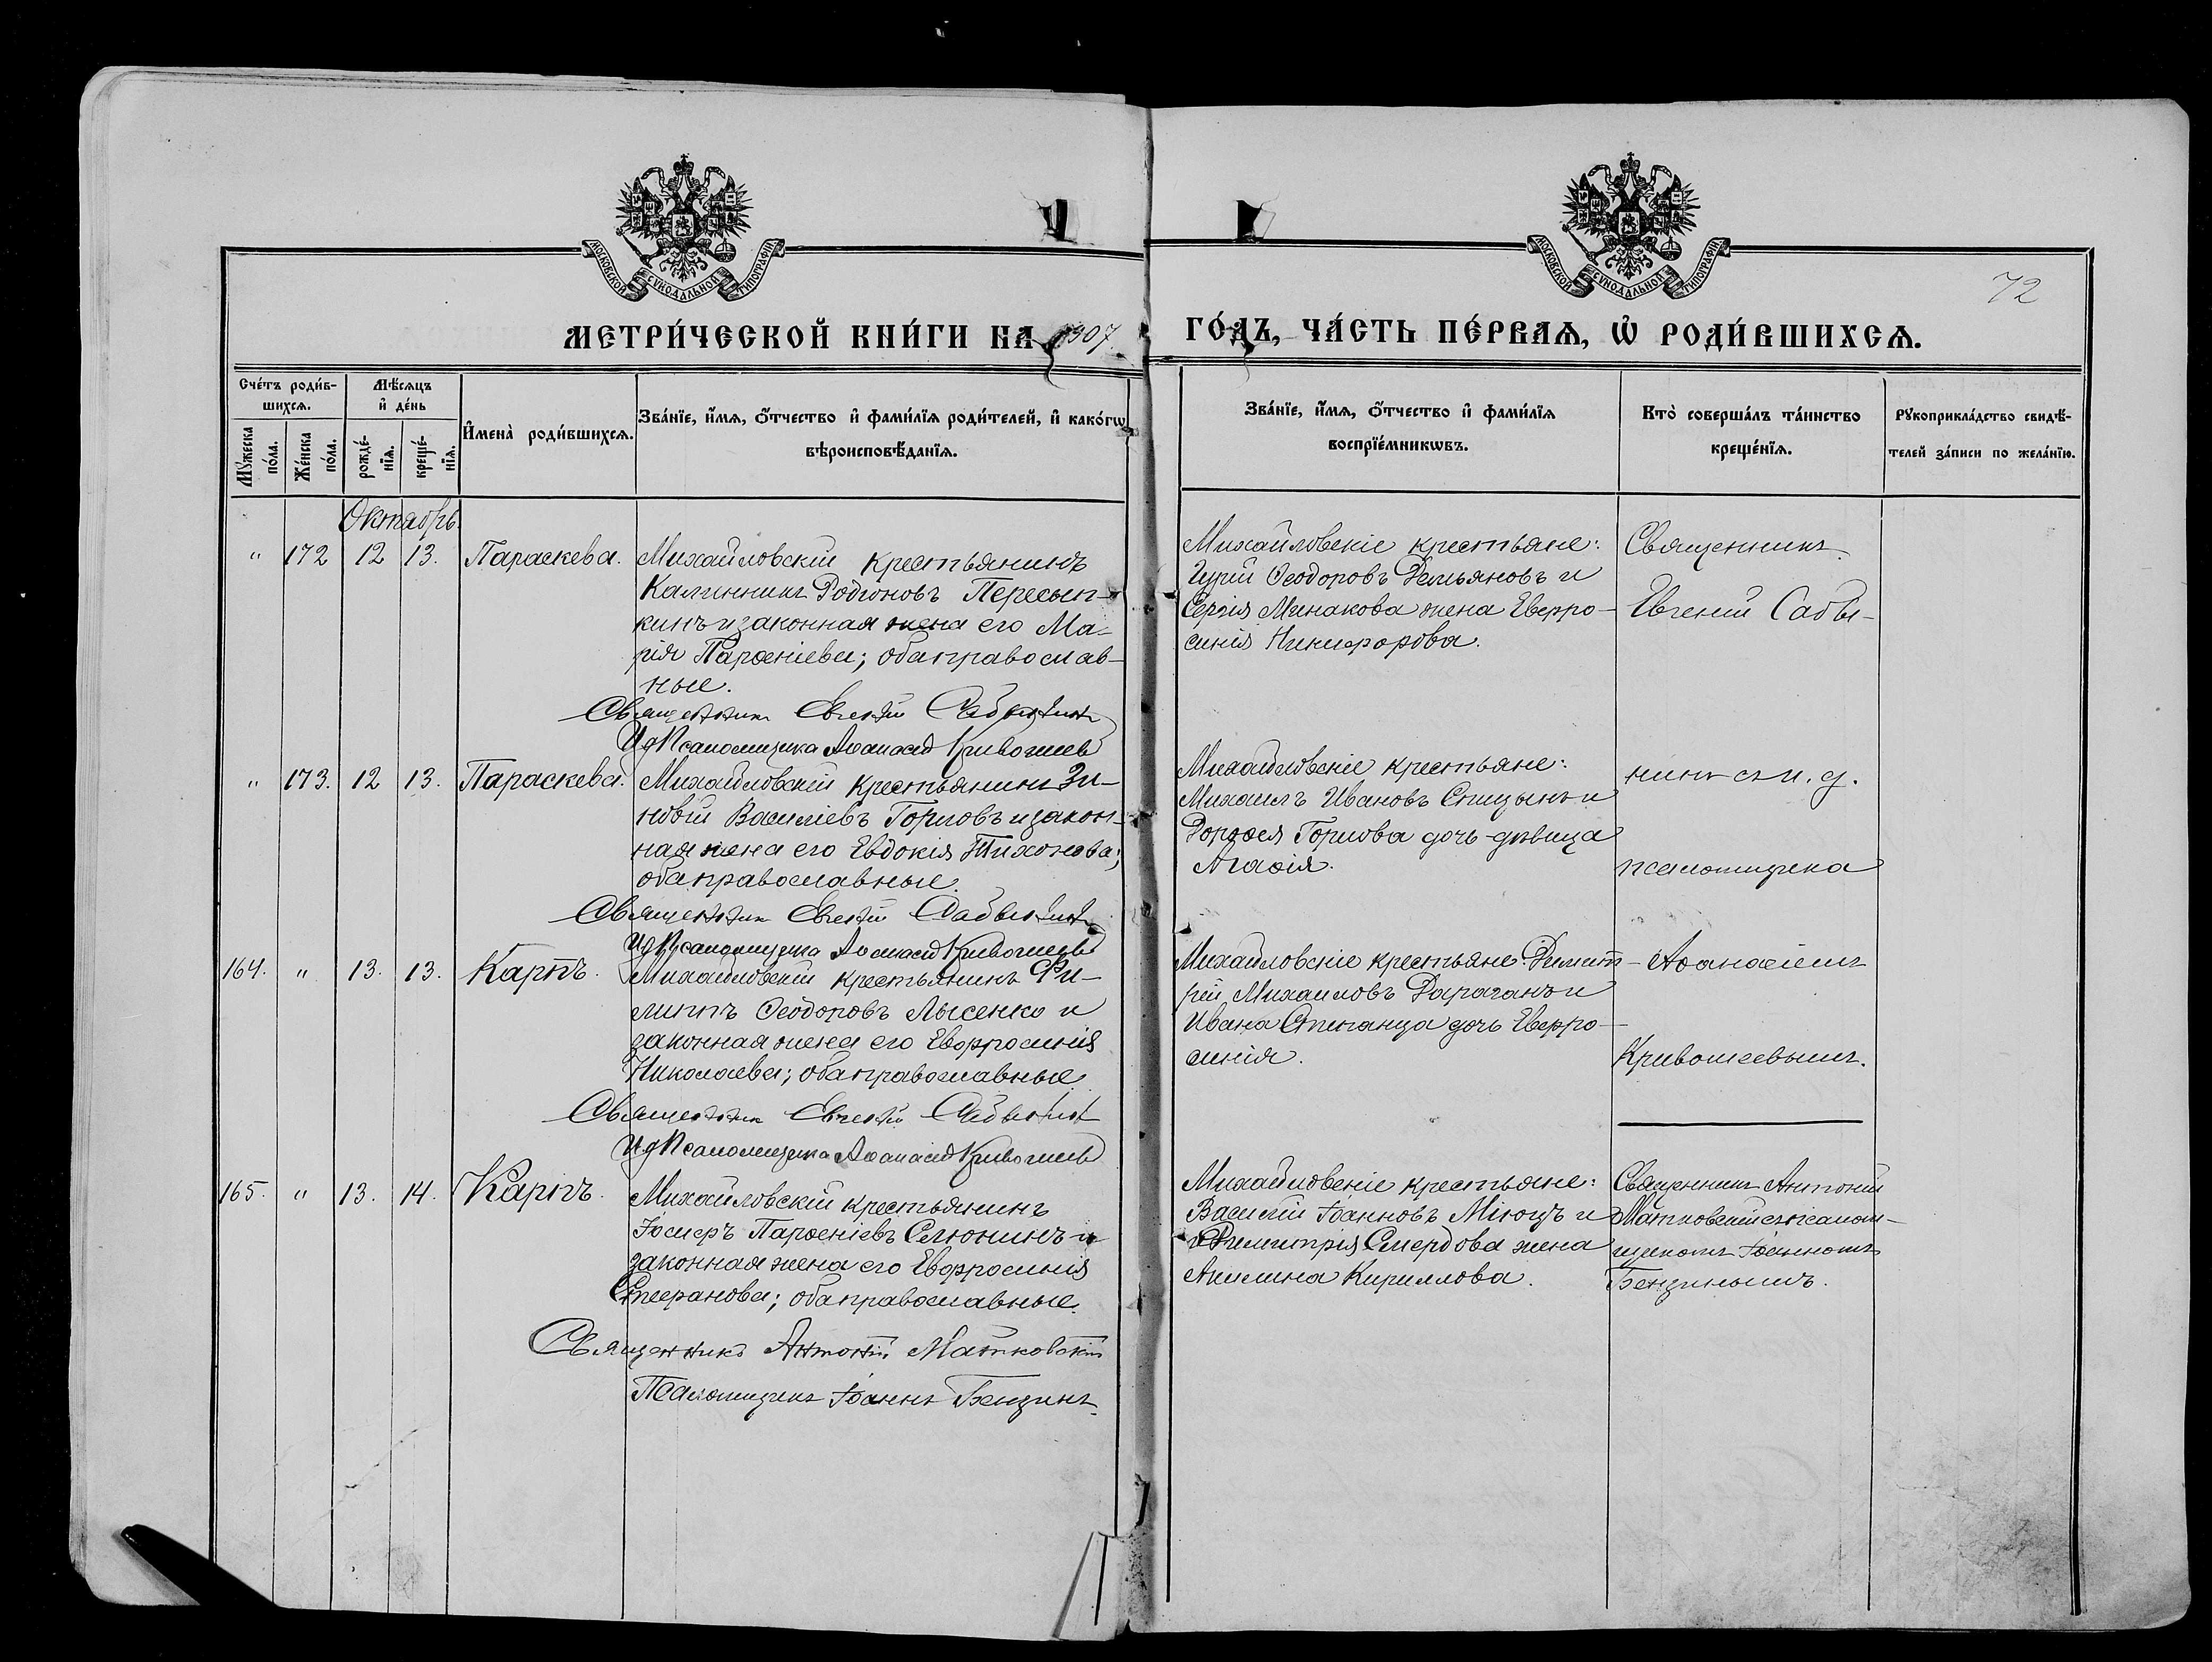 МОСКОВСКОЙ СУНОДАЛЬНОЙ ТИПОГРАФІИ
МОСКОВСКОЙ СУНОДАЛЬНОЙ ТИПОГРАФІИ
72
МЕТРИ́ЧЕСКОЙ КНИ́ГИ НА 1907
ГО́ДЪ, ЧА́СТЬ ПЕ́РВАѦ, Ѡ҆ РОДИ́ВШИХСѦ.
Сче́тъ роди́в-
шихсѧ.
Мꙋ́жеска по́ла.
Же́нска по́ла.
Мѣ́сѧцъ
и҆ де́нь
рожде́-
нїѧ.
креще́-
нїѧ.
И҆мена̀ роди́вшихсѧ.
Зва́нїе, и҆́мѧ, ѻ҆́тчество и҆ фами́лїѧ роди́телей, и҆ како́гѡ
вѣроисповѣ́данїѧ.
Зва́нїе, и҆́мѧ, ѻ҆́тчество и҆ фами́лїѧ
воспрїе́мникѡвъ.
Кто̀ соверша́лъ та́инство
креще́нїѧ.
Рꙋкоприкла́дство свидѣ́-
телей за́писи по жела́нїю.
Октябрь.
" 172 12 13. Параскева.
Михайловскій крестьянинъ
Калинникъ Родіоновъ Пересып-
кинъ и законная жена его Ма-
рія Парѳеніева; оба православ-
ные.
Священникъ Евгеній Сабынинъ
И д Псаломщика Аѳанасій Кривошеевъ
Михайловскіе крестьяне:
Гурій Ѳеодоровъ Демьяновъ и
Сергія Минакова жена Евфро-
синія Никифорова.
Священникъ
Евгеній Сабы-
" 173. 12 13. Параскева.
Михайловскій крестьянинъ Зи-
новій Василіевъ Горловъ и закон-
ная жена его Евдокія Тихонова;
оба православные.
Священникъ Евгеній Сабынинъ
И д Псаломщика Аѳанасій Кривошеевъ
Михайловскіе крестьяне:
Михаилъ Ивановъ Спицынъ и
Дороѳея Горлова дочь-дѣвица
Агаѳія.
нинъ съ и. д.
псаломщика
164. " 13. 13. Карпъ.
Михайловскій крестьянинъ Фи-
липпъ Ѳеодоровъ Лысенко и
законная жена его Евфросинія
Николаева; оба православные.
Священникъ Евгеній Сабынинъ
И д Псаломщика Аѳанасій Кривошеевъ
Михайловскіе крестьяне: Димит-
рій Михаиловъ Дараганъ и
Ивана Степанца дочь Евфро-
синія.
Аѳанасіемъ
Кривошеевымъ.
165. " 13. 14. Карпъ.
Михайловскій крестьянинъ
Іосифъ Парѳеніевъ Селюнинъ и
законная жена его Евфросинія
Стефанова; оба православные.
Священникъ Антоній Матковскій
Псаломщикъ Іоаннъ Бензинъ.
Михайловскіе крестьяне:
Василій Іоанновъ Міюцъ и
Димитрія Смердова жена
Акилина Кириллова.
Священникъ Антоній
Матковскій съ псалом-
щикомъ Іоанномъ
Бензинымъ.